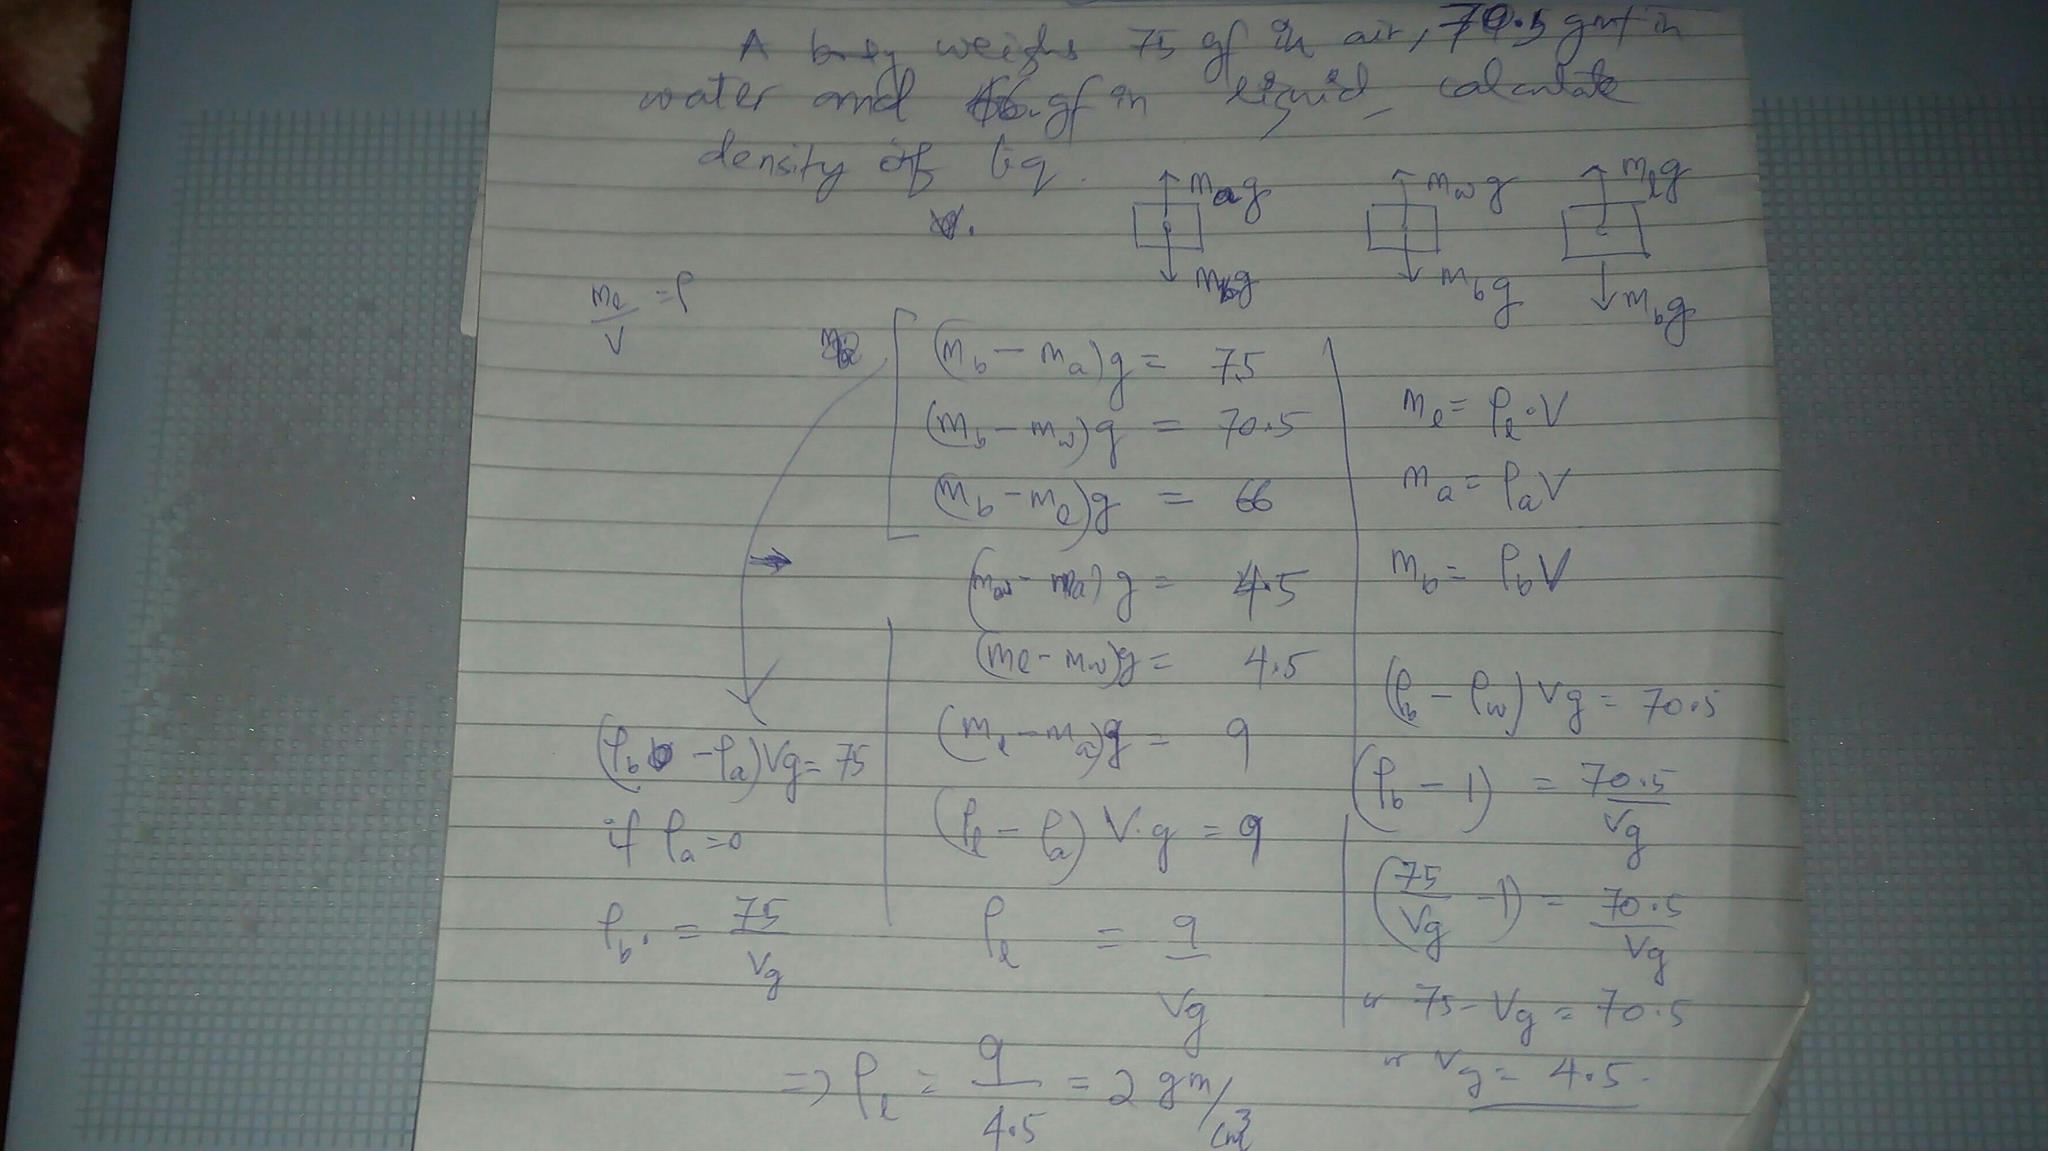 A body weighs 75 gf in air, 70.5 gmf in
water and 66 gf in liquid, calculate
density of liq.
mag mwg mlg
mbg mbg mbg
ml/V = ρ
(mb - ma)g = 75
(mb - mw)g = 70.5
(mb - ml)g = 66
(mw - ma)g = 4.5
(ml - mw)g = 4.5
(ml - ma)g = 9
(ρl - ρa) V.g = 9
ρl = 9/Vg
ml = ρl.V
ma = ρaV
mb = ρbV
(ρb - ρw) Vg = 70.5
(ρb - 1) = 70.5/Vg
(75/Vg - 1) = 70.5/Vg
or 75 - Vg = 70.5
or Vg = 4.5
(ρb - ρa)Vg = 75
if ρa = 0
ρb. = 75/Vg
=> ρl = 9/4.5 = 2 gm/cm³